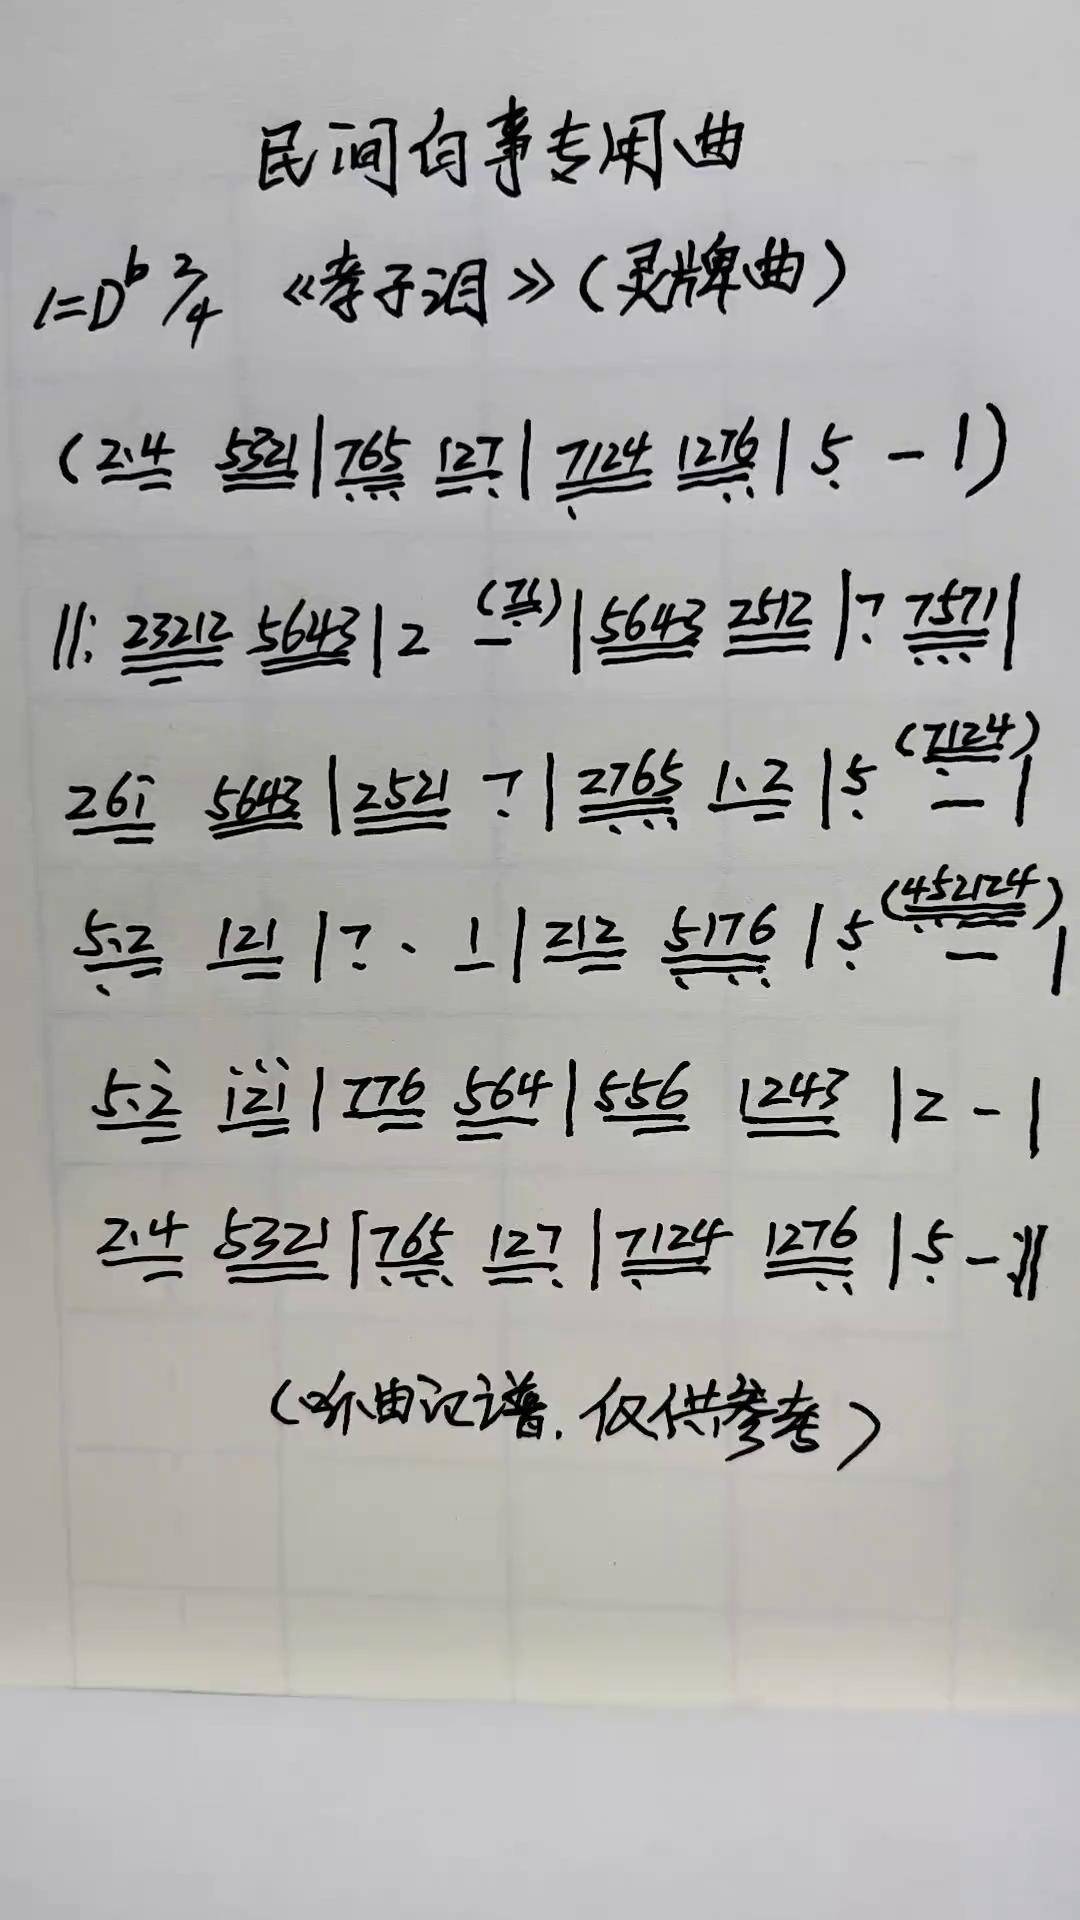 民间白事专用曲
1=D♭ 2/4 《孝子泪》(灵牌曲)
(2.4 5321|765 127|7124 1276|5 - |)
||: 23212 5643|2 - (76)|5643 2512|7 7571|
26i 5643|2521 7|2765 1.2|5 - (7124)|
5.2 121|7 . 1|212 5176|5 - (452124)|
5.2 i2i|776 564|556 1243|2 - |
2.4 5321|765 127|7124 1276|5 - :||
(听曲记谱.仅供参考)